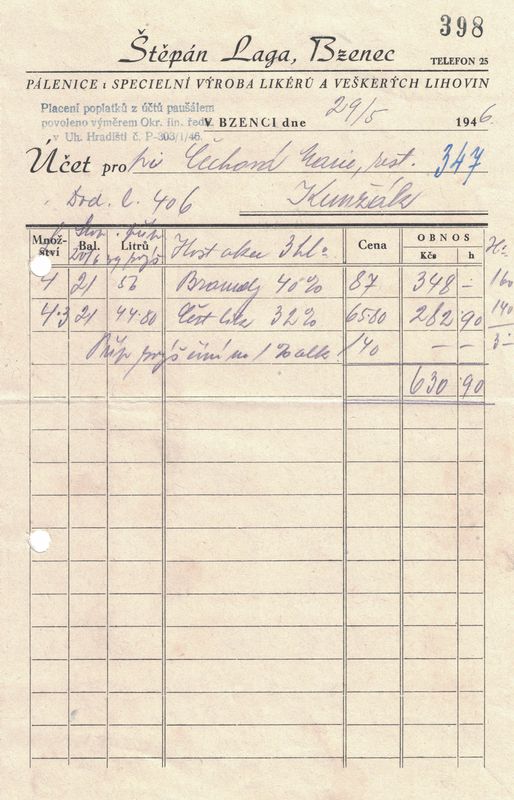 398
Štěpán Laga, Bzenec
TELEFON 25
PÁLENICE i SPECIELNÍ VÝROBA LIKÉRŮ A VEŠKERÝCH LIHOVIN
Placení poplatků z účtů paušálem
povoleno výměrem Okr. fin. řed.
v Uh. Hradišti č. P-303/1/46.
V BZENCI dne 29/5 1946
Účet pro Čechová Marie, rest. 347
Dod. č. 406 Kunžák
Množství Bal. Litrů Cena OBNOS
Kčs h
4 21 56 Brandy 40% 87 348 – 160
4·3 21 44·80 32% 65·80 282 90 140
1% alk. 140 – – 3–
630 90